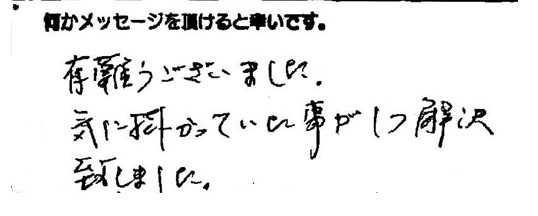 何かメッセージを頂けると幸いです。
有難うございました。
気に掛かっていた事が1つ解決
致しました。